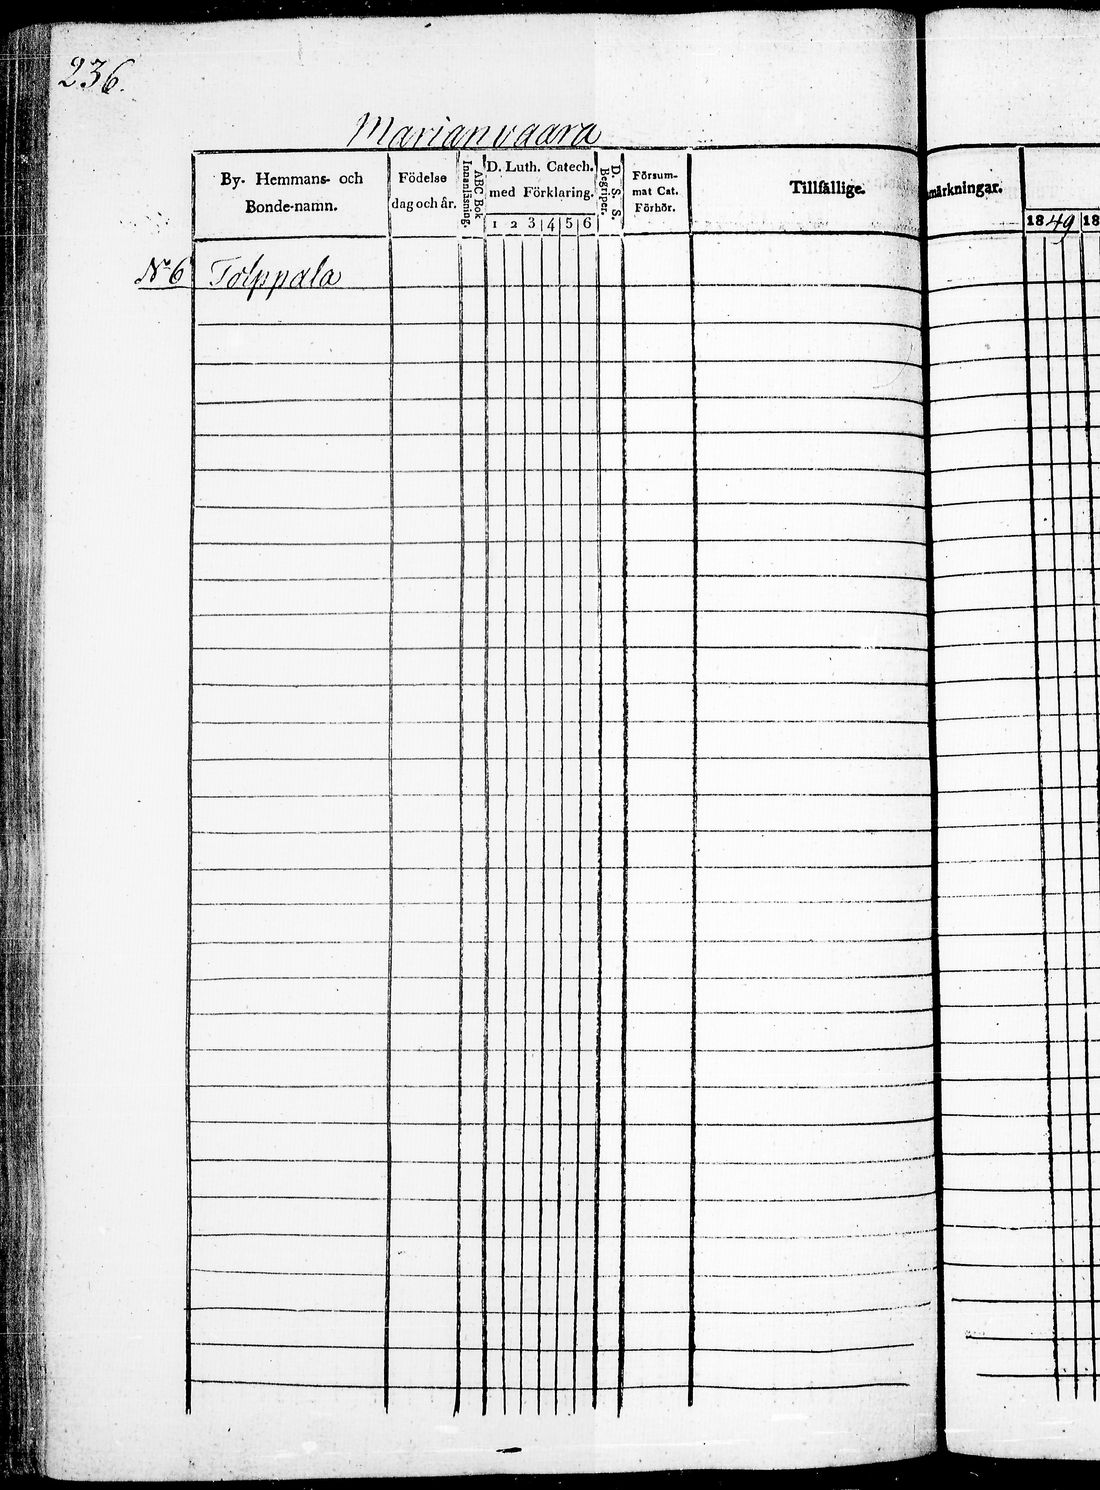 236.
Marianvaara
By- Hemmans- och
Bonde-namn.
Födelse
dag och år.
ABC Bok
Innanläsning.
D. Luth. Catech.
med Förklaring.
1 2 3 4 5 6
D. S. S.
Begriper.
Försum-
mat Cat.
Förhör.
Tillfällige.
märkningar.
1849 18
No 6 Tolppala